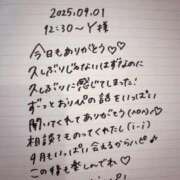 2025.09.01
12:30~ Y様
今日もありがとう♡♡
久しぶりじゃないはずなのに
久しぶりに感じてしまった!
ずっとおりぴの話をいっぱい
聞いてくれてありがとう(^o^)♡
相談までのってくれたし(i-i)
9月もいっぱい会えるからハピ♪
この後も楽しんでね♡